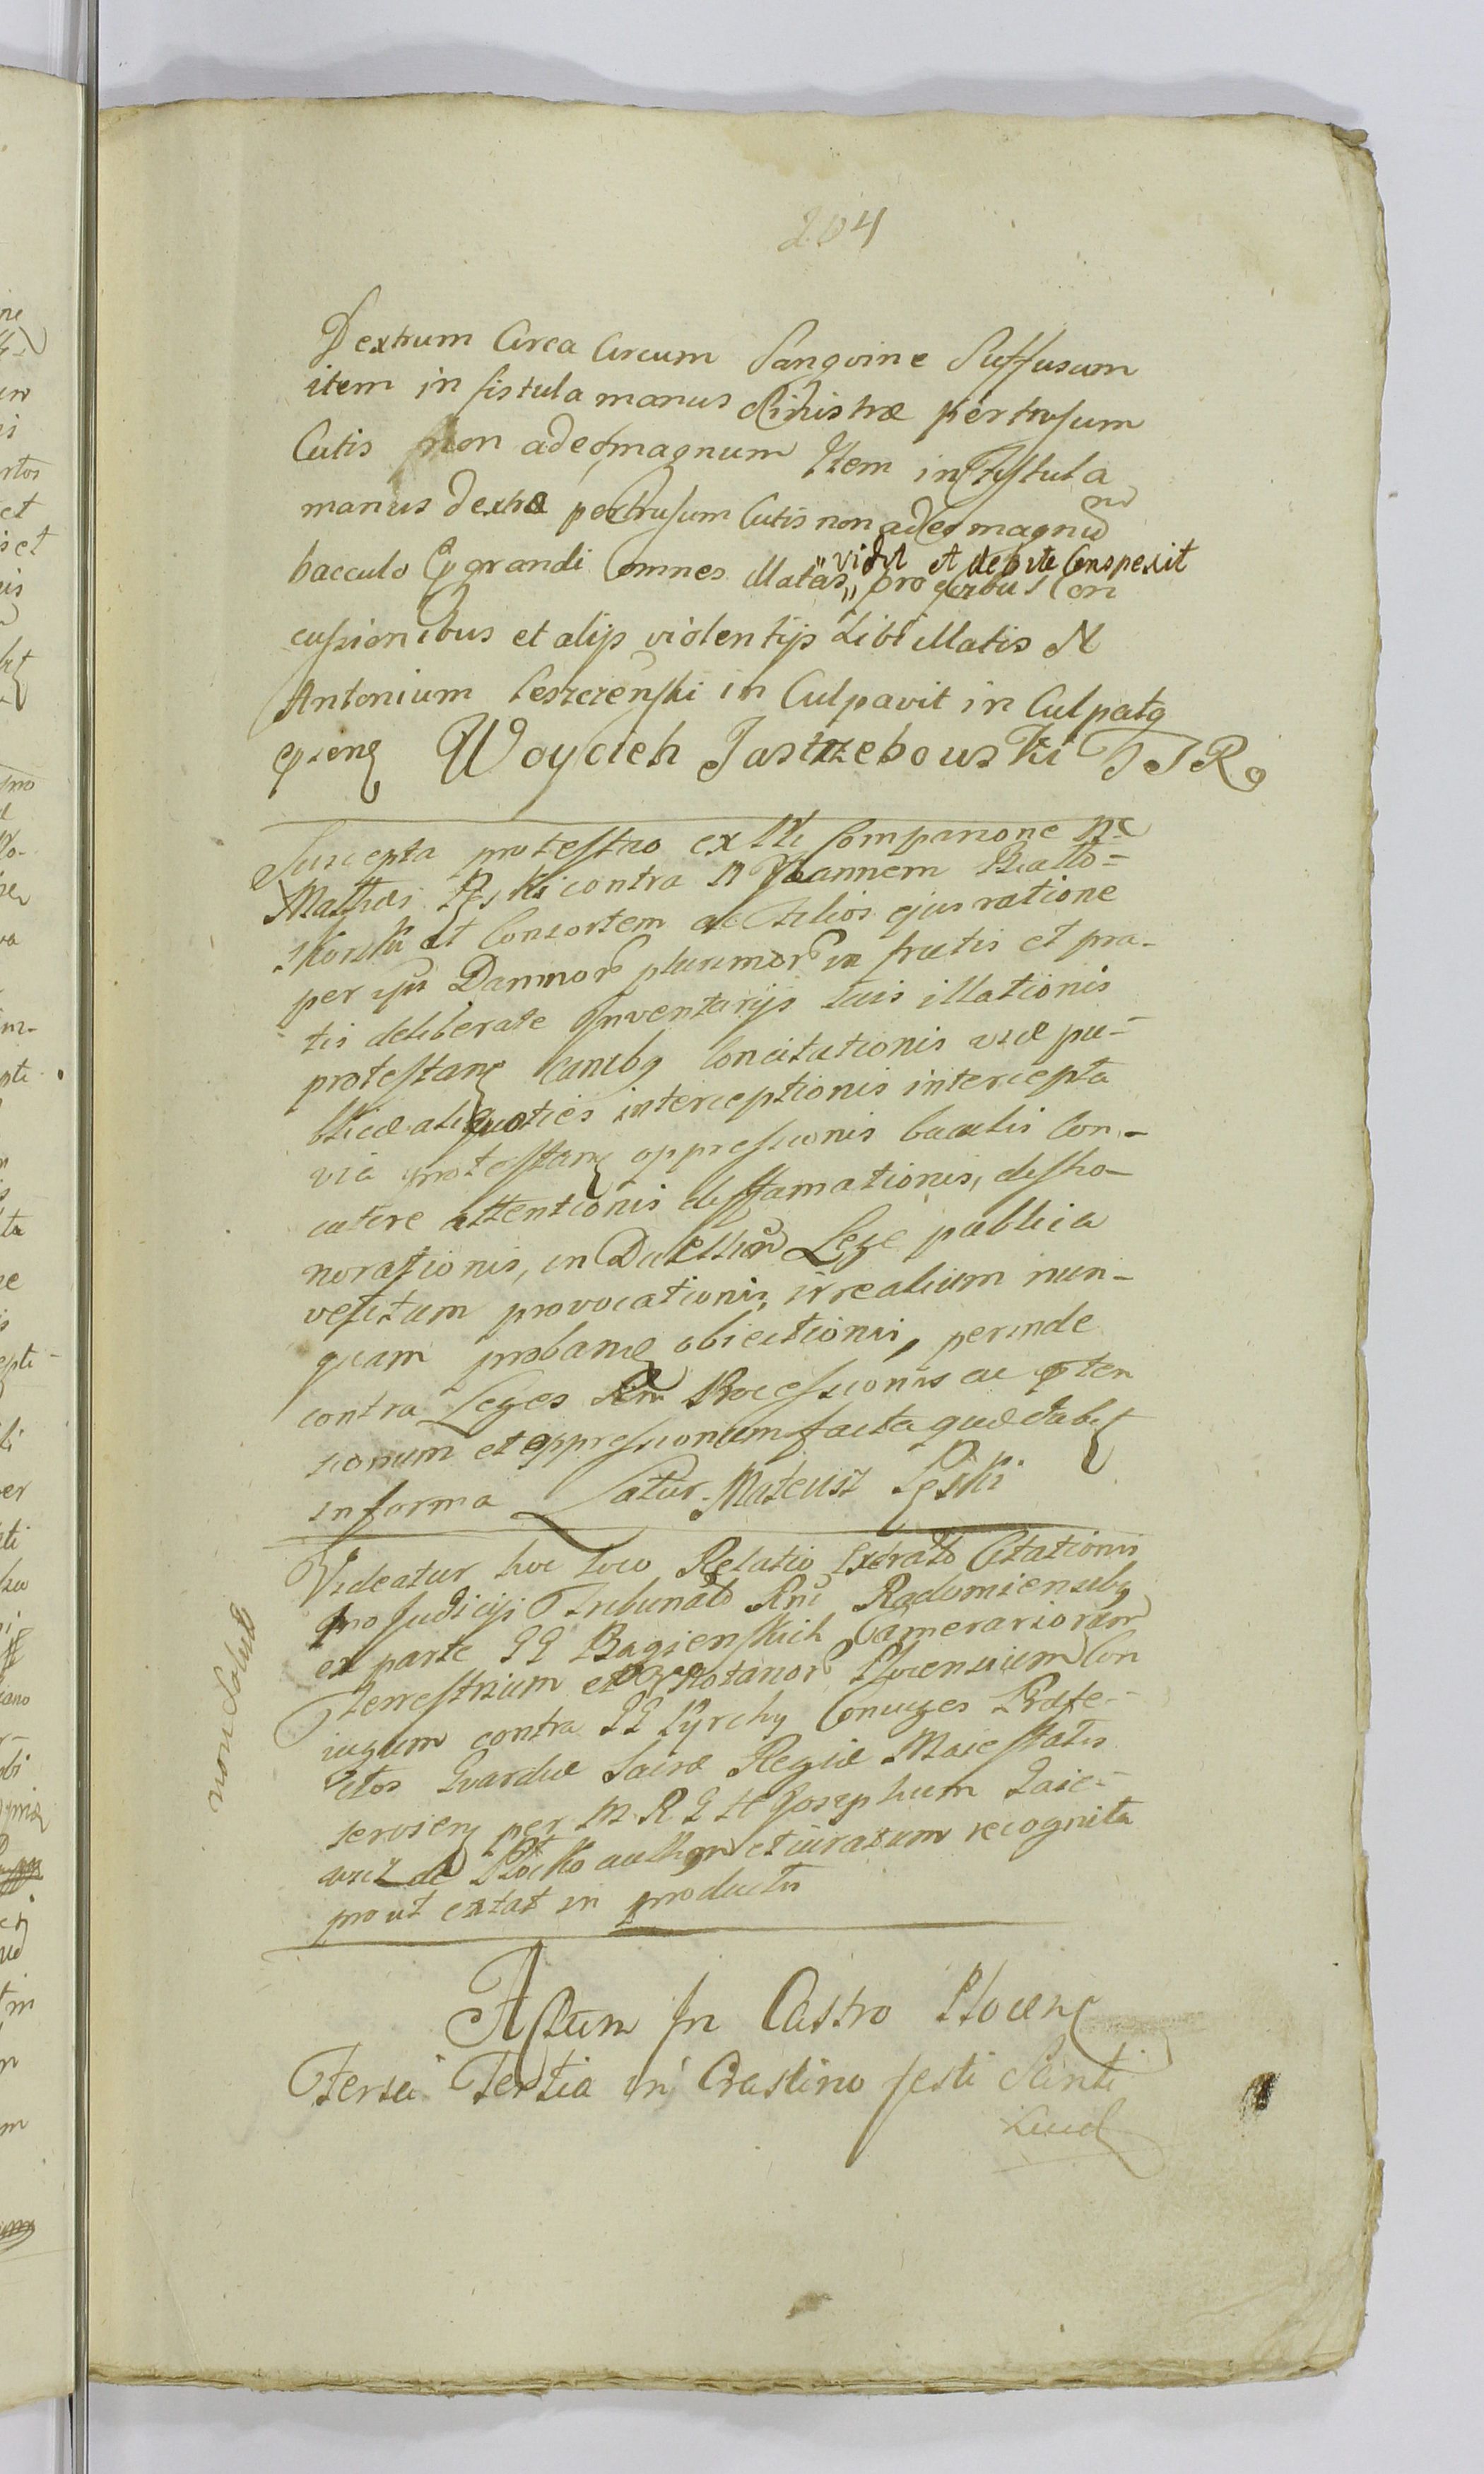 204
Dextrum Circa Circum Sangvine Suffusum
item in fistula manus Sinistræ pertrusum
Cutis non adeo magnum Item in fistula
manus dextræ pertrusum Cutis non adeo magnū
bacculo grandi omnes illatas „ vidit et debite Conspexit
„ pro qvibus Con
cussionibus et alijs violentijs sibi illatis N
Antonium Leszczenski in Culpavit in Culpatq
Woyciech Jastrzebowski J J R
Suscepta protestao ex Comparione
Mathæi Pęski contra N Joannem Biallo=
skorski et Consortem ac Filios ejus ratione
per Damnor plurimor in fructis et pra-
tis deliberate Inventarijs suis illationis
protestan canibq Concitationis viæ pu-
blicæ aliquoties interceptionis intercepta
via protestan oppressionis baculis Con-
cutere attentionis diffamationis, disho-
norationis, in Duellum Lege publica
vetitum provocationis, irrealium nun-
quam proban obiectionis, perinde
contra Leges Processionis ac
sionum et oppressionum facta quæ dabit
in forma Latur. Mateusz Pęski
Videatur hoc loco Relatio Citationis
pro Judicijs Tribunal Rni Radomiensibq
ex parte GG Bagienskich Camerariorum
Terrestrium et Notarior Plocensium Con
iugum contra GG Pyrchy Coniuges Præfe-
ctos Gvardiæ Sacræ Regiæ Maiestatis
servien per M R G H Josephum Gaie-
wicz de Płocko et iuratum recognita
prout extat in productis
non solut
Actum In Castro Plocen
Feria Tertia in Crastino festi Santi
Lucæ